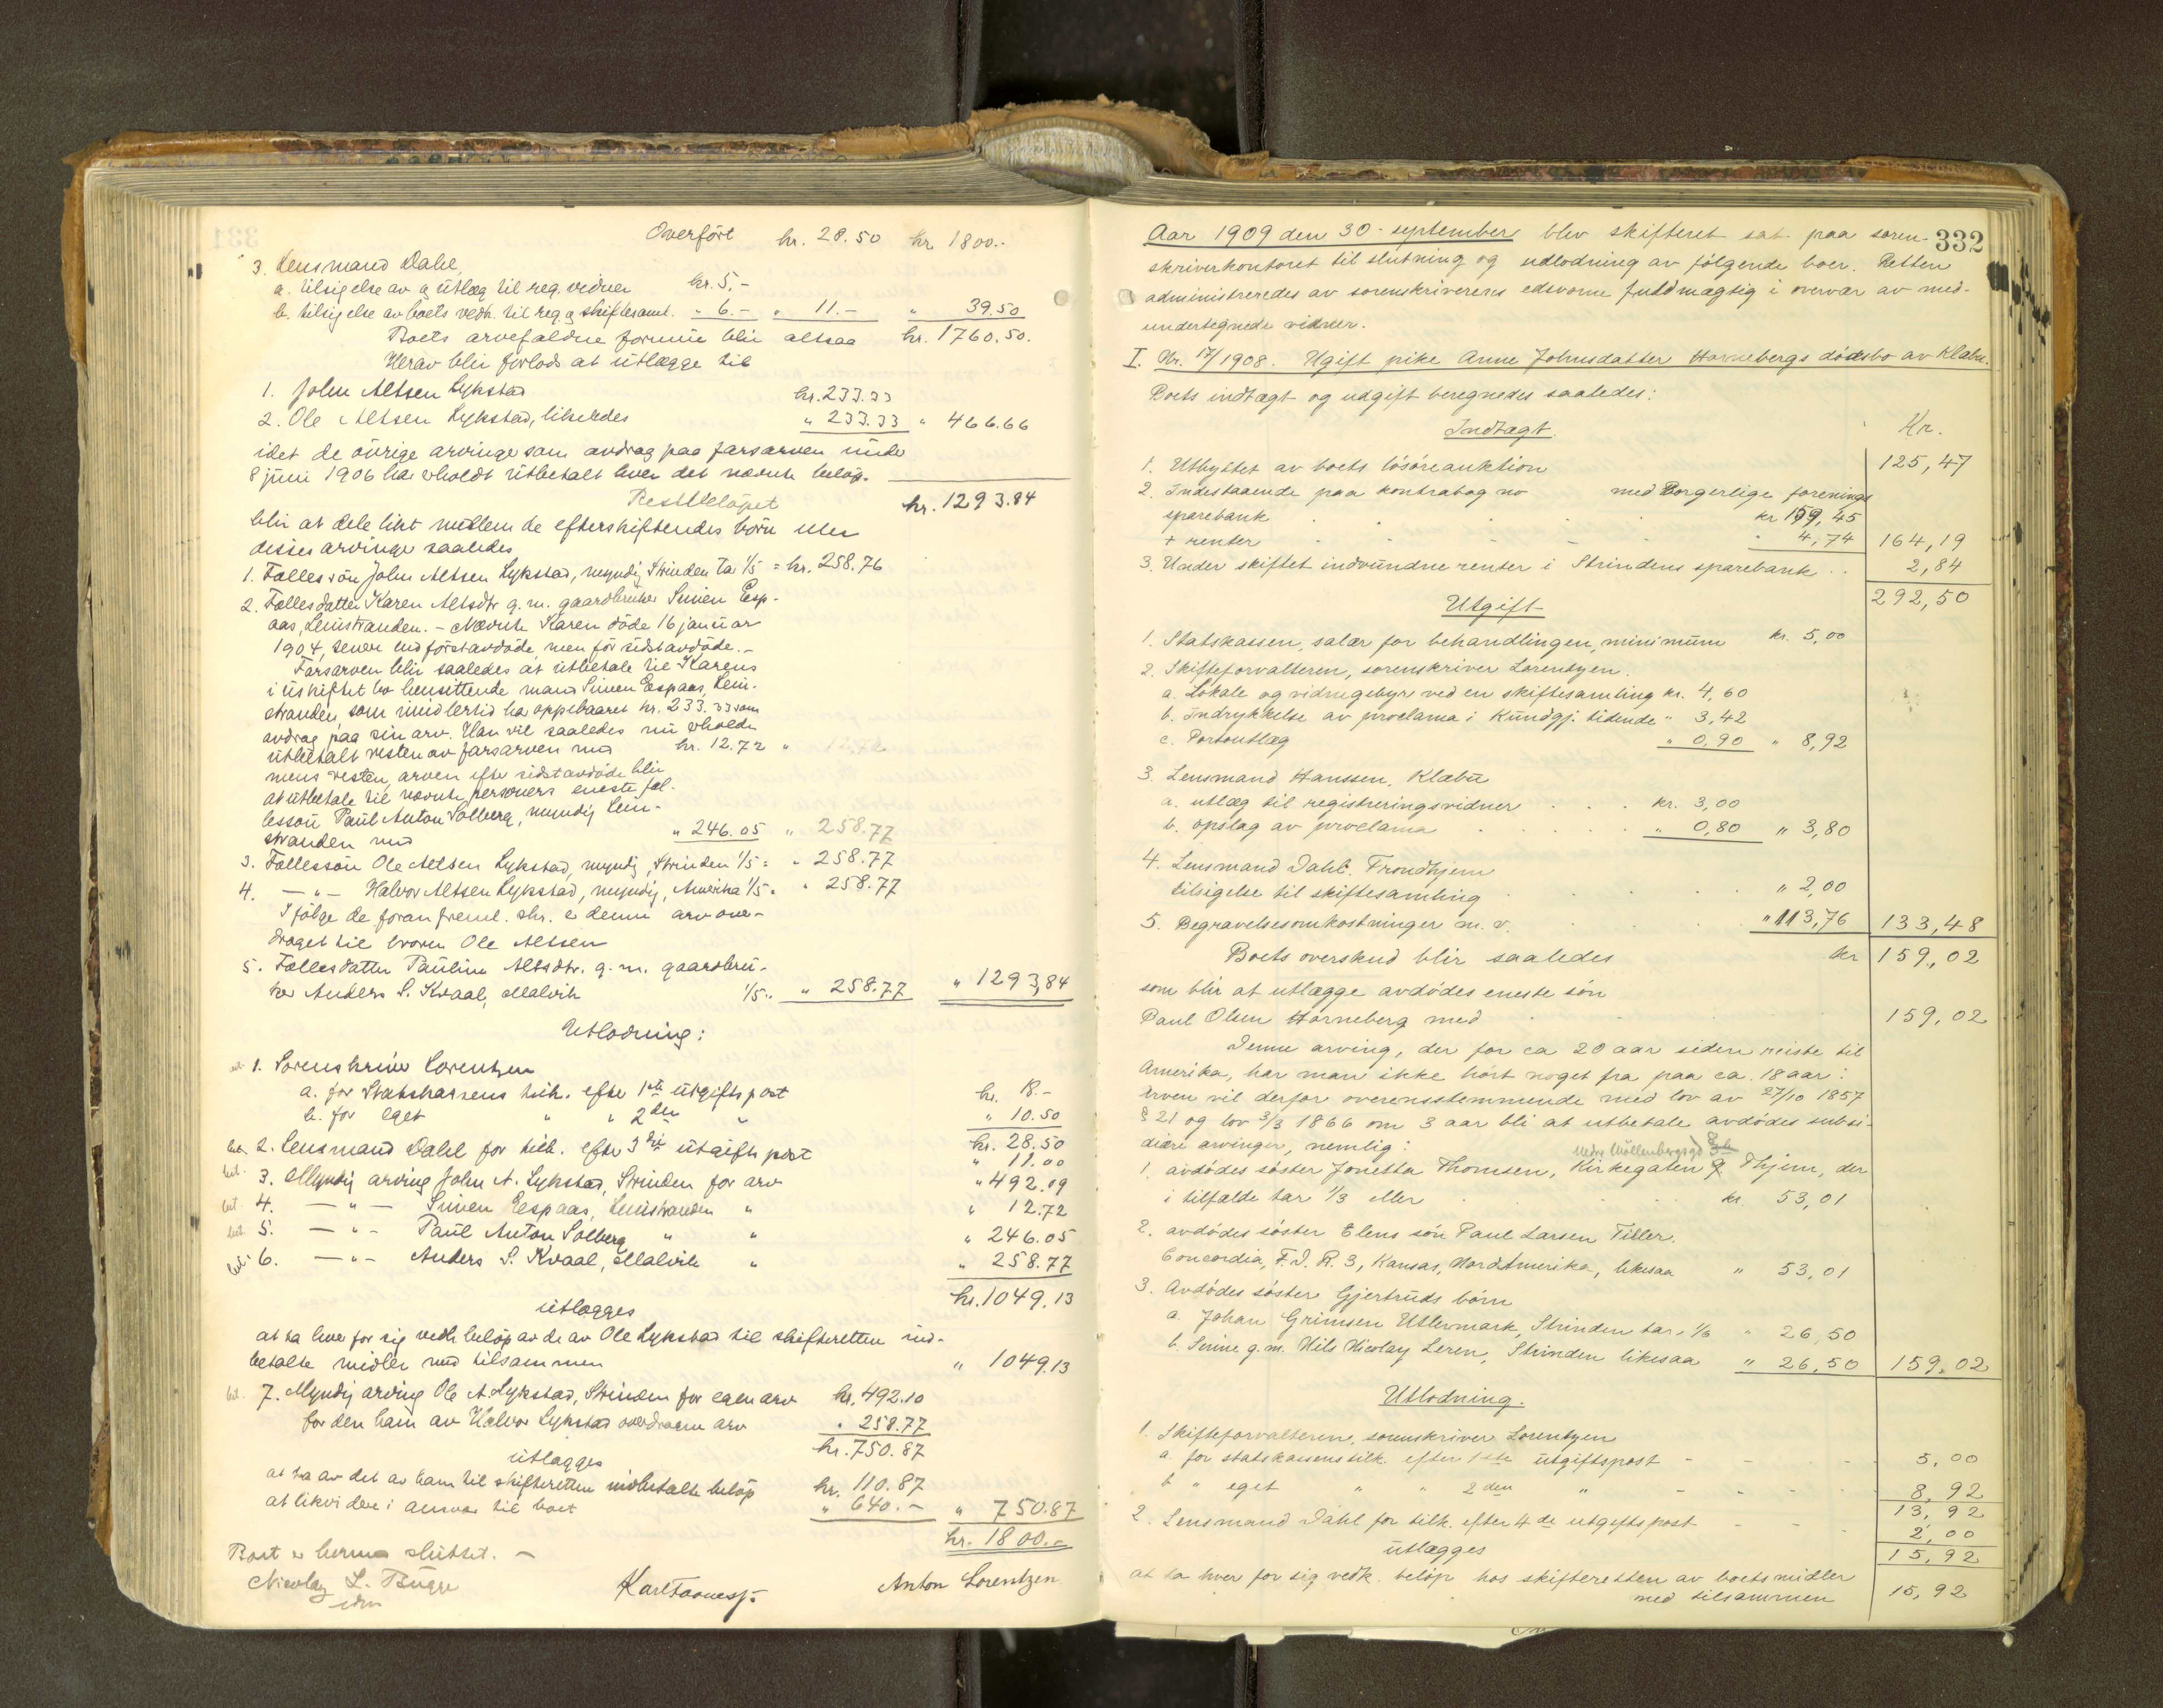 Overført kr. 28.50 kr 1800.-
3. Lensmand Dahl,
a. tilsigelse av og utlæg til reg. vidner kr. 5,-
b. tilsigelse av boets vedk. til reg. og skiftesaml. " 6.- " 11.- " 39.50
Boets arvefaldne formue blir altsaa kr. 1760.50.
Herav blir forlods at utlægge til
1. John Altsen Lykstad kr. 233.33
2. Ole Altsen Lykstad, likeledes " 233.33 " 466.66
idet de øvrige arvinger som avdrag paa farsarven under
8 juni 1906 har erholdt utbetalt hver det nævnte beløp.
Restbeløpet kr. 1293.84
blir at dele likt mellem de efterskiftendes børn eller
disses arvinger saaledes
1. Fælles søn John Altsen Lykstad, myndig, Strinden tar 1/5 = kr. 258.76
2. Fælles datter Karen Altsdtr g. m. gaardbruker Simen Esp-
aas, Leinstranden. - Nævnte Karen døde 16 januar
1904, senere end førstavdøde, men før sidstavdøde. -
Farsarven blir saaledes at utbetale til Karens
i uskiftet bo hensittende mand Simen Espaas, Lein-
stranden, som imidlertid har oppebaaret kr. 233.33 som
avdrag paa sin arv. Han vil saaledes nu erholde
utbetalt resten av farsarven med kr. 12.72 " 12.72
mens resten, arven efter sidstavdøde blir
at utbetale til nævnte personers eneste fæl-
lessøn Paul Anton Solberg, myndig Lein-
stranden med " 246.05 " 258.77
3. Fællessøn Ole Altsen Lykstad, myndig, Strinden 1/5 = " 258.77
4. — " — Halvor Altsen Lykstad, myndig, Amerika 1/5 = " 258.77
Ifølge de foran freml. skr. er denne arv over-
draget til broren Ole Altsen
5. Fælles datter Pauline Altsdtr. g. m. gaardbru-
ker Anders S. Kvaal, Malvik 1/5 = " 258.77 " 1293,84
Utlodning:
bet. 1. Sorenskriver Lorentzen
a. for Statskassens tilk. efter 1ste utgiftspost kr. 18.-
b. for eget " " 2den " " 10.50
kr. 28.50
bet. 2. Lensmand Dahl for tilk. efter 3die utgiftspost " 11.00
bet. 3. Myndig arving John A. Lykstad, Strinden for arv " 492.09
bet. 4. — " — Simen Espaas, Leinstranden " " 12.72
bet. 5. — " — Paul Anton Solberg " " " 246.05
bet. 6. — " — Anders S. Kvaal, Malvik " " 258.77
kr. 1049.13
utlægges
at ta hver for sig vedk. beløp av de av Ole Lykstad til skifteretten ind-
betalte midler med tilsammen " 1049.13
bet. 7. Myndig arving Ole A. Lykstad, Strinden for egen arv kr. 492.10
for den ham av Halvor Lykstad overdragne arv " 258.77
kr. 750.87
utlægges
at ta av det av ham til skifteretten indbetalte beløp kr. 110.87
at likvidere i ansvar til boet " 640.- " 750.87
kr. 1800.-
Boet er herme sluttet. -
Nicolay L. Bugge
Karl Faanesj. Anton Lorentzen
332
Aar 1909 den 30. september blev skifteret sat paa soren-
skriverkontoret til slutning og udlodning av følgende boer. Retten
administreredes av sorenskriverens edsvorne fuldmægtig i overvær av med-
undertegnede vidner.
I. Nr. 17/1908. Ugift pike Anne Johnsdatter Hornebergs dødsbo av Klæbu.
Boets indtægt og udgift beregnedes saaledes:
Indtægt. Kr.
1. Utbyttet av boets løsøreauktion 125,47
2. Indestaaende paa kontrabog no med Borgerlige forenings
sparebank kr 159,45
+ renter " 4,74 164,19
3. Under skiftet indvundne renter i Strindens sparebank 2,84
292,50
Utgift
1. Statskassen, salær for behandlingen, minimum kr. 5,00
2. Skifteforvalteren, sorenskriver Lorentzen.
a. Lokale og vidnegebyr ved en skiftesamling kr. 4,60
b. Indrykkelse av proclama i Kundgj. tidende " 3,42
c. Portoutlæg " 0,90 " 8,92
3. Lensmand Hanssen, Klæbu
a. utlæg til registreringsvidner kr. 3,00
b. opslag av proclama " 0,80 " 3,80
4. Lensmand Dahl. Trondhjem
tilsigelse til skiftesamling " 2,00
5. Begravelsesomkostninger m. v. " 113,76 133,48
Boets overskud blir saaledes kr 159,02
som blir at utlægge avdødes eneste søn
Paul Olsen Horneberg med 159,02
Denne arving, der for ca 20 aar siden reiste til
Amerika, har man ikke hørt noget fra paa ca. 18 aar:
Arven vil derfor overensstemmende med lov av 27/10 1857
§ 21 og lov 3/3 1866 om 3 aar bli at utbetale avdødes subsi-
diære arvinger, nemlig:
Nedre Møllenbergsgd 36
1. avdødes søster Jonetta Thomsen, Kirkegaten 9 Thjem, der
i tilfælde tar 1/3 eller kr 53,01
2. avdødes søster Elens søn Paul Larsen Tiller.
Concordia, F. D. R. 3, Kansas, NordAmerika, likesaa " 53,01
3. Avdødes søster Gjertruds børn
a. Johan Grimsen Utlermark, Strinden tar 1/6 " 26,50
b. Serine g. m. Nils Nicolay Leren, Strinden likesaa " 26,50 159,02
Utlodning.
1. Skifteforvalteren, sorenskriver Lorentzen
a. for statskassens tilk. efter 1ste utgiftspost 5,00
b " eget " " 2den " 8,92
13,92
2. Lensmand Dahl for tilk. efter 4de utgiftspost 2,00
utlægges 15,92
at ta hver for sig vedk. beløp hos skifteretten av boets midler
med tilsammen 15,92